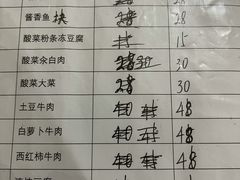 酱香鱼块 28 28
酸菜粉条冻豆腐 15 15
酸菜汆白肉 28 30 30
酸菜大菜 28 30
土豆牛肉 40 48
白萝卜牛肉 40 48
西红柿牛肉 40 48